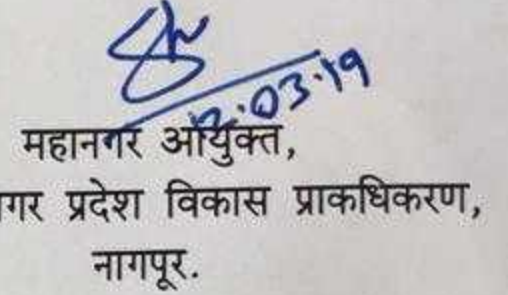 12.03.19
महानगर आयुक्त,
गर प्रदेश विकास प्राकधिकरण,
नागपूर.